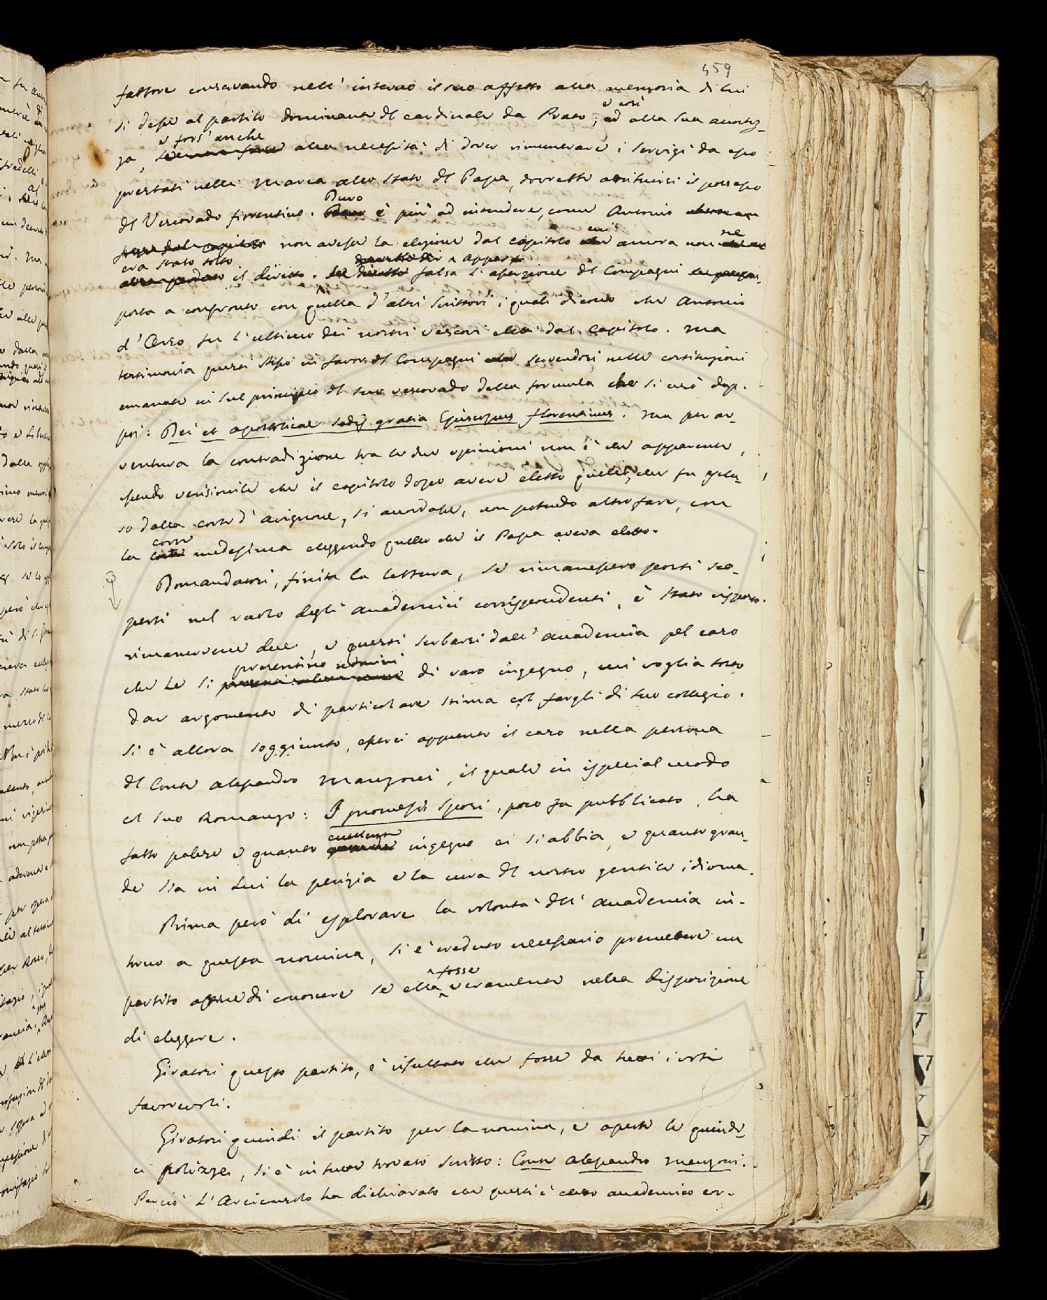 459
fattore conservando nell' interno il suo affetto alla memoria di lui
si desse al partito dominante del cardinale da Prato; e così ad alla sua autorità
, e fors' anche alla necessità di dover rimunerare i servigi da esso
prestati nella Marca allo stato del Papa, dovrebbe attribuirsi il possesso
del Vescovado fiorentino. Duro è più ad intendere, come Antonio
non avesse la elezione dal capitolo cui ancora non ne
era stato tolto il diritto. Apparve falsa l' asserzione del Compagni
posta a confronto con quella d' altri scrittori, i quali dicono che Antonio
d' Orso fu l' ultimo dei nostri vescovi eletti dal capitolo. Ma
testimonia quasi stesso in favore del Compagni servendosi nelle costituzioni
emanate in sul principio del suo vescovado della formula che si usò dap-
poi: Dei et apostolicae sedis gratia Episcopus florentinus. Ma per av-
ventura la contradizione tra le due opinioni non è che apparente,
essendo verisimile che il capitolo dopo avere eletto quello, che fu
so dalla corte d' Avignone, si accordasse, non potendo altro fare, con
la corte medesima eleggendo quello che il Papa aveva eletto.
Domandatosi, finita la lettura, se rimanessero posti sco-
perti nel ruolo degli accademici corrispondenti, è stato risposto
rimanerne due, e questi serbarsi dall' accademia pel caso
che le si presentino uomini di raro ingegno, cui voglia tosto
dar argomento di particolare stima col fargli di suo collegio.
Si è allora soggiunto, esserci appunto il caso nella persona
del Conte Alessandro Manzoni, il quale in ispecial modo
col suo Romanzo: I promessi Sposi, poco fa pubblicato, ha
fatto palese e quanto eccellente ingegno ei si abbia, e quanto gran-
de sia in lui la perizia e la cura del nostro gentile idioma.
Prima però di esplorare la volontà dell' accademia in-
torno a questa nomina, si è creduto necessario premettere un
partito affine di conoscere se ella fosse veramente nella disposizione
di eleggere.
Giratosi questo partito, è risultato che fosse da tutti i voti
favorevoli.
Giratosi quindi il partito per la nomina, e aperte le quindi-
ci polizze, si è in tutte trovato scritto: Conte Alessandro Manzoni.
Perciò l' Arciconsolo ha dichiarato che questi è eletto accademico cor-